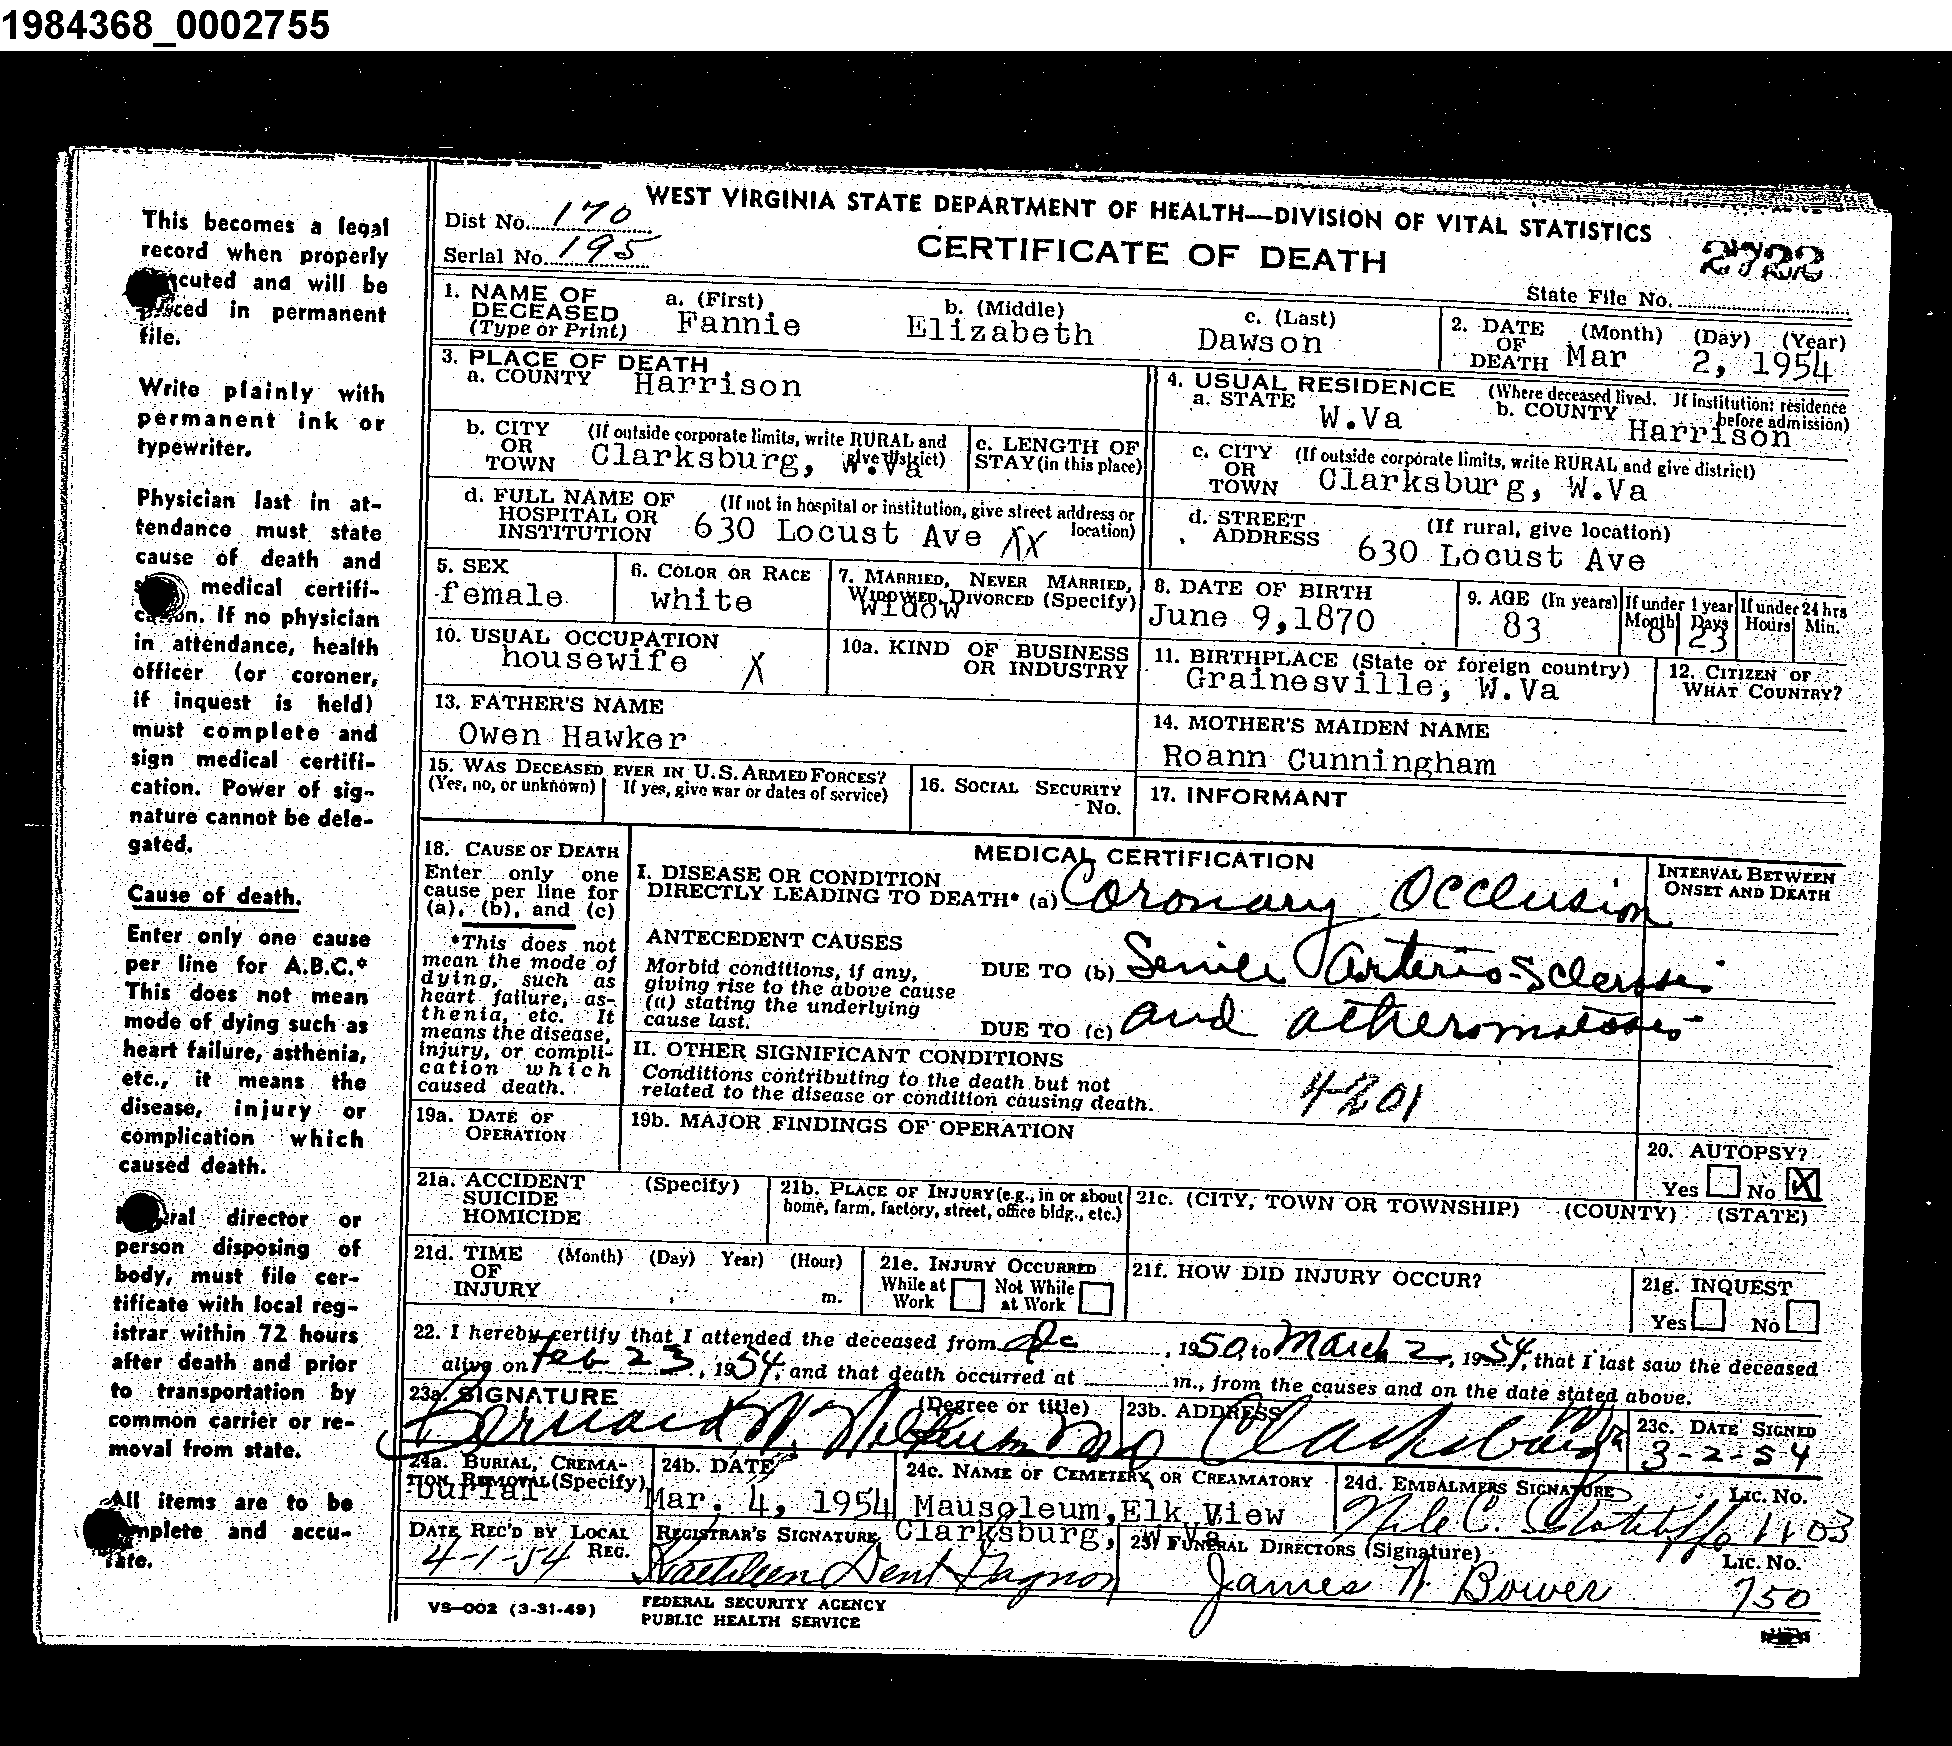 1984368_0002755
WEST VIRGINIA STATE DEPARTMENT OF HEALTH—DIVISION OF VITAL STATISTICS
CERTIFICATE OF DEATH
Dist No. 170
Serial No. 195
2722
State File No.
1. NAME OF DECEASED (Type or Print)
a. (First) Fannie
b. (Middle) Elizabeth
c. (Last) Dawson
2. DATE OF DEATH (Month) (Day) (Year) Mar 2, 1954
3. PLACE OF DEATH
a. COUNTY Harrison
b. CITY OR TOWN (If outside corporate limits, write RURAL and give district) Clarksburg, W.Va
c. LENGTH OF STAY (in this place)
d. FULL NAME OF HOSPITAL OR INSTITUTION (If not in hospital or institution, give street address or location) 630 Locust Ave XX
4. USUAL RESIDENCE (Where deceased lived. If institution: residence before admission)
a. STATE W.Va
b. COUNTY Harrison
c. CITY OR TOWN (If outside corporate limits, write RURAL and give district) Clarksburg, W.Va
d. STREET ADDRESS (If rural, give location) 630 Locust Ave
5. SEX female
6. COLOR OR RACE white
7. MARRIED, NEVER MARRIED, WIDOWED, DIVORCED (Specify) widow
8. DATE OF BIRTH June 9, 1870
9. AGE (In years) 83
If under 1 year Month 8 Days 23
If under 24 hrs Hours Min.
10. USUAL OCCUPATION housewife X
10a. KIND OF BUSINESS OR INDUSTRY
11. BIRTHPLACE (State or foreign country) Grainesville, W.Va
12. CITIZEN OF WHAT COUNTRY?
13. FATHER'S NAME Owen Hawker
14. MOTHER'S MAIDEN NAME Roann Cunningham
15. WAS DECEASED EVER IN U.S. ARMED FORCES?
(Yes, no, or unknown) If yes, give war or dates of service)
16. SOCIAL SECURITY No.
17. INFORMANT
18. CAUSE OF DEATH
Enter only one cause per line for (a), (b), and (c)
*This does not mean the mode of dying, such as heart failure, asthenia, etc. It means the disease, injury, or complication which caused death.
MEDICAL CERTIFICATION
INTERVAL BETWEEN ONSET AND DEATH
I. DISEASE OR CONDITION DIRECTLY LEADING TO DEATH* (a) Coronary Occlusion
ANTECEDENT CAUSES
Morbid conditions, if any, giving rise to the above cause (a) stating the underlying cause last.
DUE TO (b) Senile Arterio-Sclerosis
DUE TO (c) and atheromatosis
II. OTHER SIGNIFICANT CONDITIONS
Conditions contributing to the death but not related to the disease or condition causing death.
4201
19a. DATE OF OPERATION
19b. MAJOR FINDINGS OF OPERATION
20. AUTOPSY?
Yes No X
21a. ACCIDENT SUICIDE HOMICIDE (Specify)
21b. PLACE OF INJURY (e.g., in or about home, farm, factory, street, office bldg., etc.)
21c. (CITY, TOWN OR TOWNSHIP) (COUNTY) (STATE)
21d. TIME OF INJURY (Month) (Day) Year) (Hour) m.
21e. INJURY OCCURRED
While at Work Not While at Work
21f. HOW DID INJURY OCCUR?
21g. INQUEST
Yes No
22. I hereby certify that I attended the deceased from Dc, 1950, to March 2, 1954, that I last saw the deceased
alive on Feb 23, 1954, and that death occurred at m., from the causes and on the date stated above.
23a. SIGNATURE (Degree or title) Bernard MD
23b. ADDRESS Clarksburg
23c. DATE SIGNED 3-2-54
24a. BURIAL, CREMATION REMOVAL (Specify) burial
24b. DATE Mar. 4, 1954
24c. NAME OF CEMETERY OR CREAMATORY Mausoleum, Elk View
Clarksburg, W Va
24d. EMBALMERS SIGNATURE Lic. No. 1103
DATE REC'D BY LOCAL REG. 4-1-54
REGISTRAR'S SIGNATURE Kathleen Dent Gagnon
25. FUNERAL DIRECTORS (Signature) James N Bower
Lic. No. 750
VS—002 (3-31-49)
FEDERAL SECURITY AGENCY
PUBLIC HEALTH SERVICE
This becomes a legal
record when properly
executed and will be
placed in permanent
file.
Write plainly with
permanent ink or
typewriter.
Physician last in at-
tendance must state
cause of death and
medical certifi-
cation. If no physician
in attendance, health
officer (or coroner,
if inquest is held)
must complete and
sign medical certifi-
cation. Power of sig-
nature cannot be dele-
gated.
Cause of death.
Enter only one cause
per line for A.B.C.*
This does not mean
mode of dying such as
heart failure, asthenia,
etc., it means the
disease, injury or
complication which
caused death.
Funeral director or
person disposing of
body, must file cer-
tificate with local reg-
istrar within 72 hours
after death and prior
to transportation by
common carrier or re-
moval from state.
All items are to be
complete and accu-
rate.